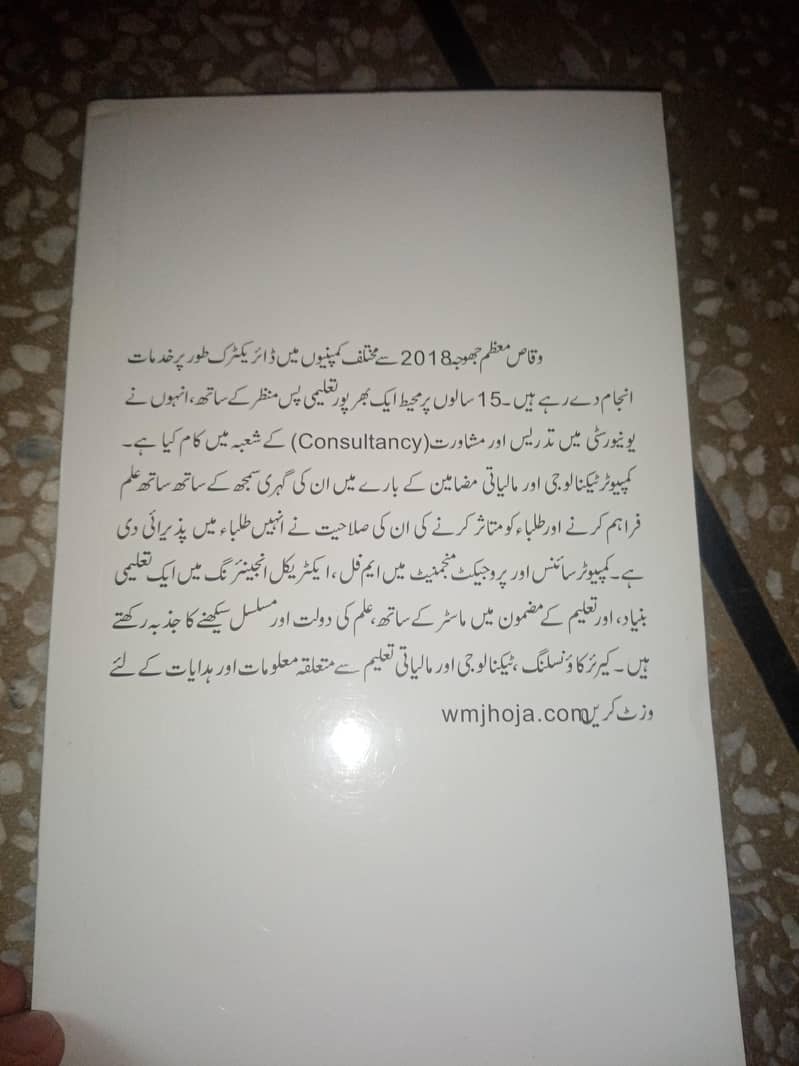 وقاص معظم جھوجہ 2018 سے مختلف کمپنیوں میں ڈائریکٹرک طور پر خدمات
انجام دے رہے ہیں۔ 15 سالوں پر محیط ایک بھرپور تعلیمی پس منظر کے ساتھ، انہوں نے
یونیورسٹی میں تدریس اور مشاورت (Consultancy) کے شعبہ میں کام کیا ہے۔
کمپیوٹر ٹیکنالوجی اور مالیاتی مضامین کے بارے میں ان کی گہری سمجھ کے ساتھ ساتھ علم
فراہم کرنے اور طلباء کو متاثر کرنے کی ان کی صلاحیت نے انہیں طلباء میں پذیرائی دی
ہے۔ کمپیوٹر سائنس اور پروجیکٹ منجمنیٹ میں ایم فل، ایکٹریکل انجینئرنگ میں ایک تعلیمی
بنیاد، اور تعلیم کے مضمون میں ماسٹر کے ساتھ، علم کی دولت اور مسلسل سیکھنے کا جذبہ رکھتے
ہیں۔ کیرئر کاؤنسلنگ، ٹیکنالوجی اور مالیاتی تعلیم سے متعلقہ معلومات اور ہدایات کے لئے
وزٹ کریں wmjhoja.com